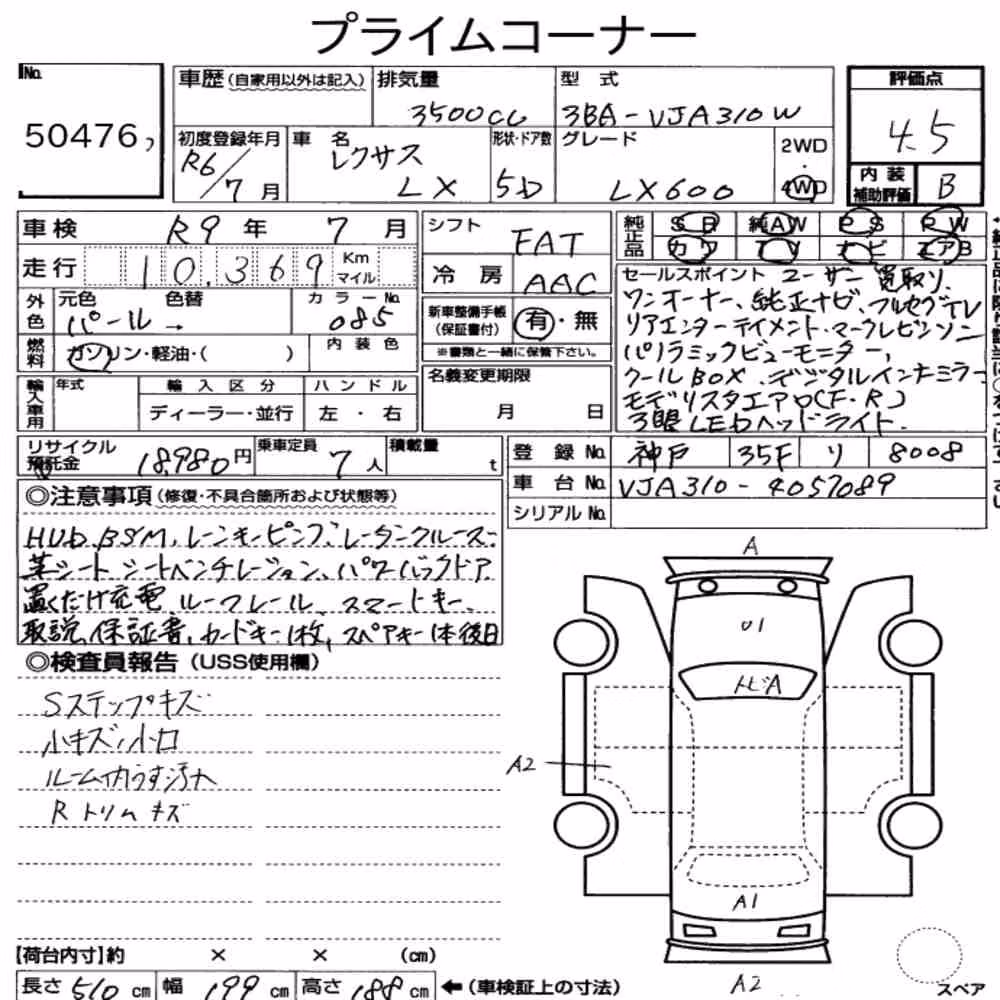 プライムコーナー
No.
50476
車歴(自家用以外は記入)
排気量
3500cc
型 式
3BA-VJA310W
評価点
4.5
初度登録年月
R6/7月
車 名
レクサス
LX
形状・ドア数
5D
グレード
LX600
2WD
・
4WD
内装
補助評価
B
車検
R9年 7月
走行
10,369
Km
マイル
シフト
FAT
冷 房
AAC
純正品
SR
純AW
PS
PW
カワ
TV
ナビ
エアB
外色
元色
パール
色替
→
カラーNo.
085
燃料
ガソリン・軽油・( )
内 装 色
新車整備手帳
(保証書付)
有・無
※書類と一緒に保管下さい。
セールスポイント ユーザー買取り、
ワンオーナー、純正ナビ、フルセグTV
リアエンターテイメント、マークレビンソン
パノラミックビューモニター、
クールBOX、デジタルインナーミラー
モデリスタエアロ(F・R)
3眼LEDヘッドライト、
輸入車用
年式
輸 入 区 分
ディーラー・並行
ハンドル
左 ・ 右
名義変更期限
月 日
リサイクル
預託金
18980円
乗車定員
7人
積載量
t
登 録 No.
神戸
35F
リ
8008
車 台 No.
VJA310-4057089
シリアル No.
◎注意事項(修復・不具合箇所および状態等)
HUD、BSM、レーンキーピング、レーダークルーズ、
革シート、シートベンチレーション、パワーバックドア
置くだけ充電、ルーフレール、スマートキー、
取説、保証書、カードキー1枚、スペアキー1本後日
◎検査員報告(USS使用欄)
Sステップキズ
小キズ、小凹
ルーム内うす汚れ
Rトリムキズ
A
U1
トビA
A2
A1
A2
【荷台内寸】約 × × (cm)
長さ 510 cm
幅 199 cm
高さ 188 cm
←(車検証上の寸法)
スペア